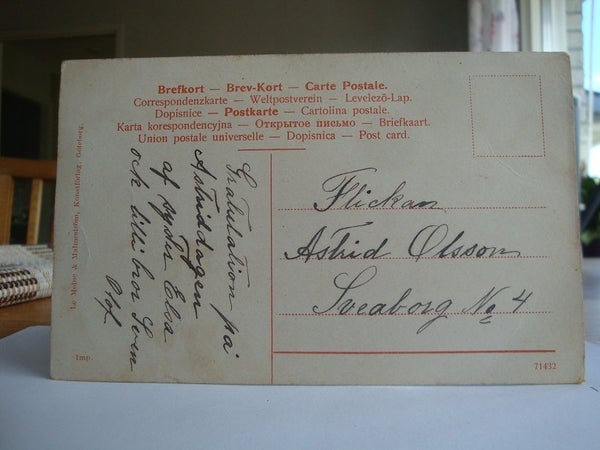 Brefkort — Brev-Kort — Carte Postale.
Correspondenzkarte — Weltpostverein — Levelezõ-Lap.
Dopisnice — Postkarte — Cartolina postale.
Karta korespondencyjna — Открытое письмо — Briefkaart.
Union postale universelle — Dopisnica — Post card.
Gratulation på
Astriddagen
af syster Elsa
ock lilli bror Sven
Flickan
Astrid Olsson
Sveaborg No 4
Le Moine & Malmeström, Konstförlag, Göteborg.
Imp.
71432